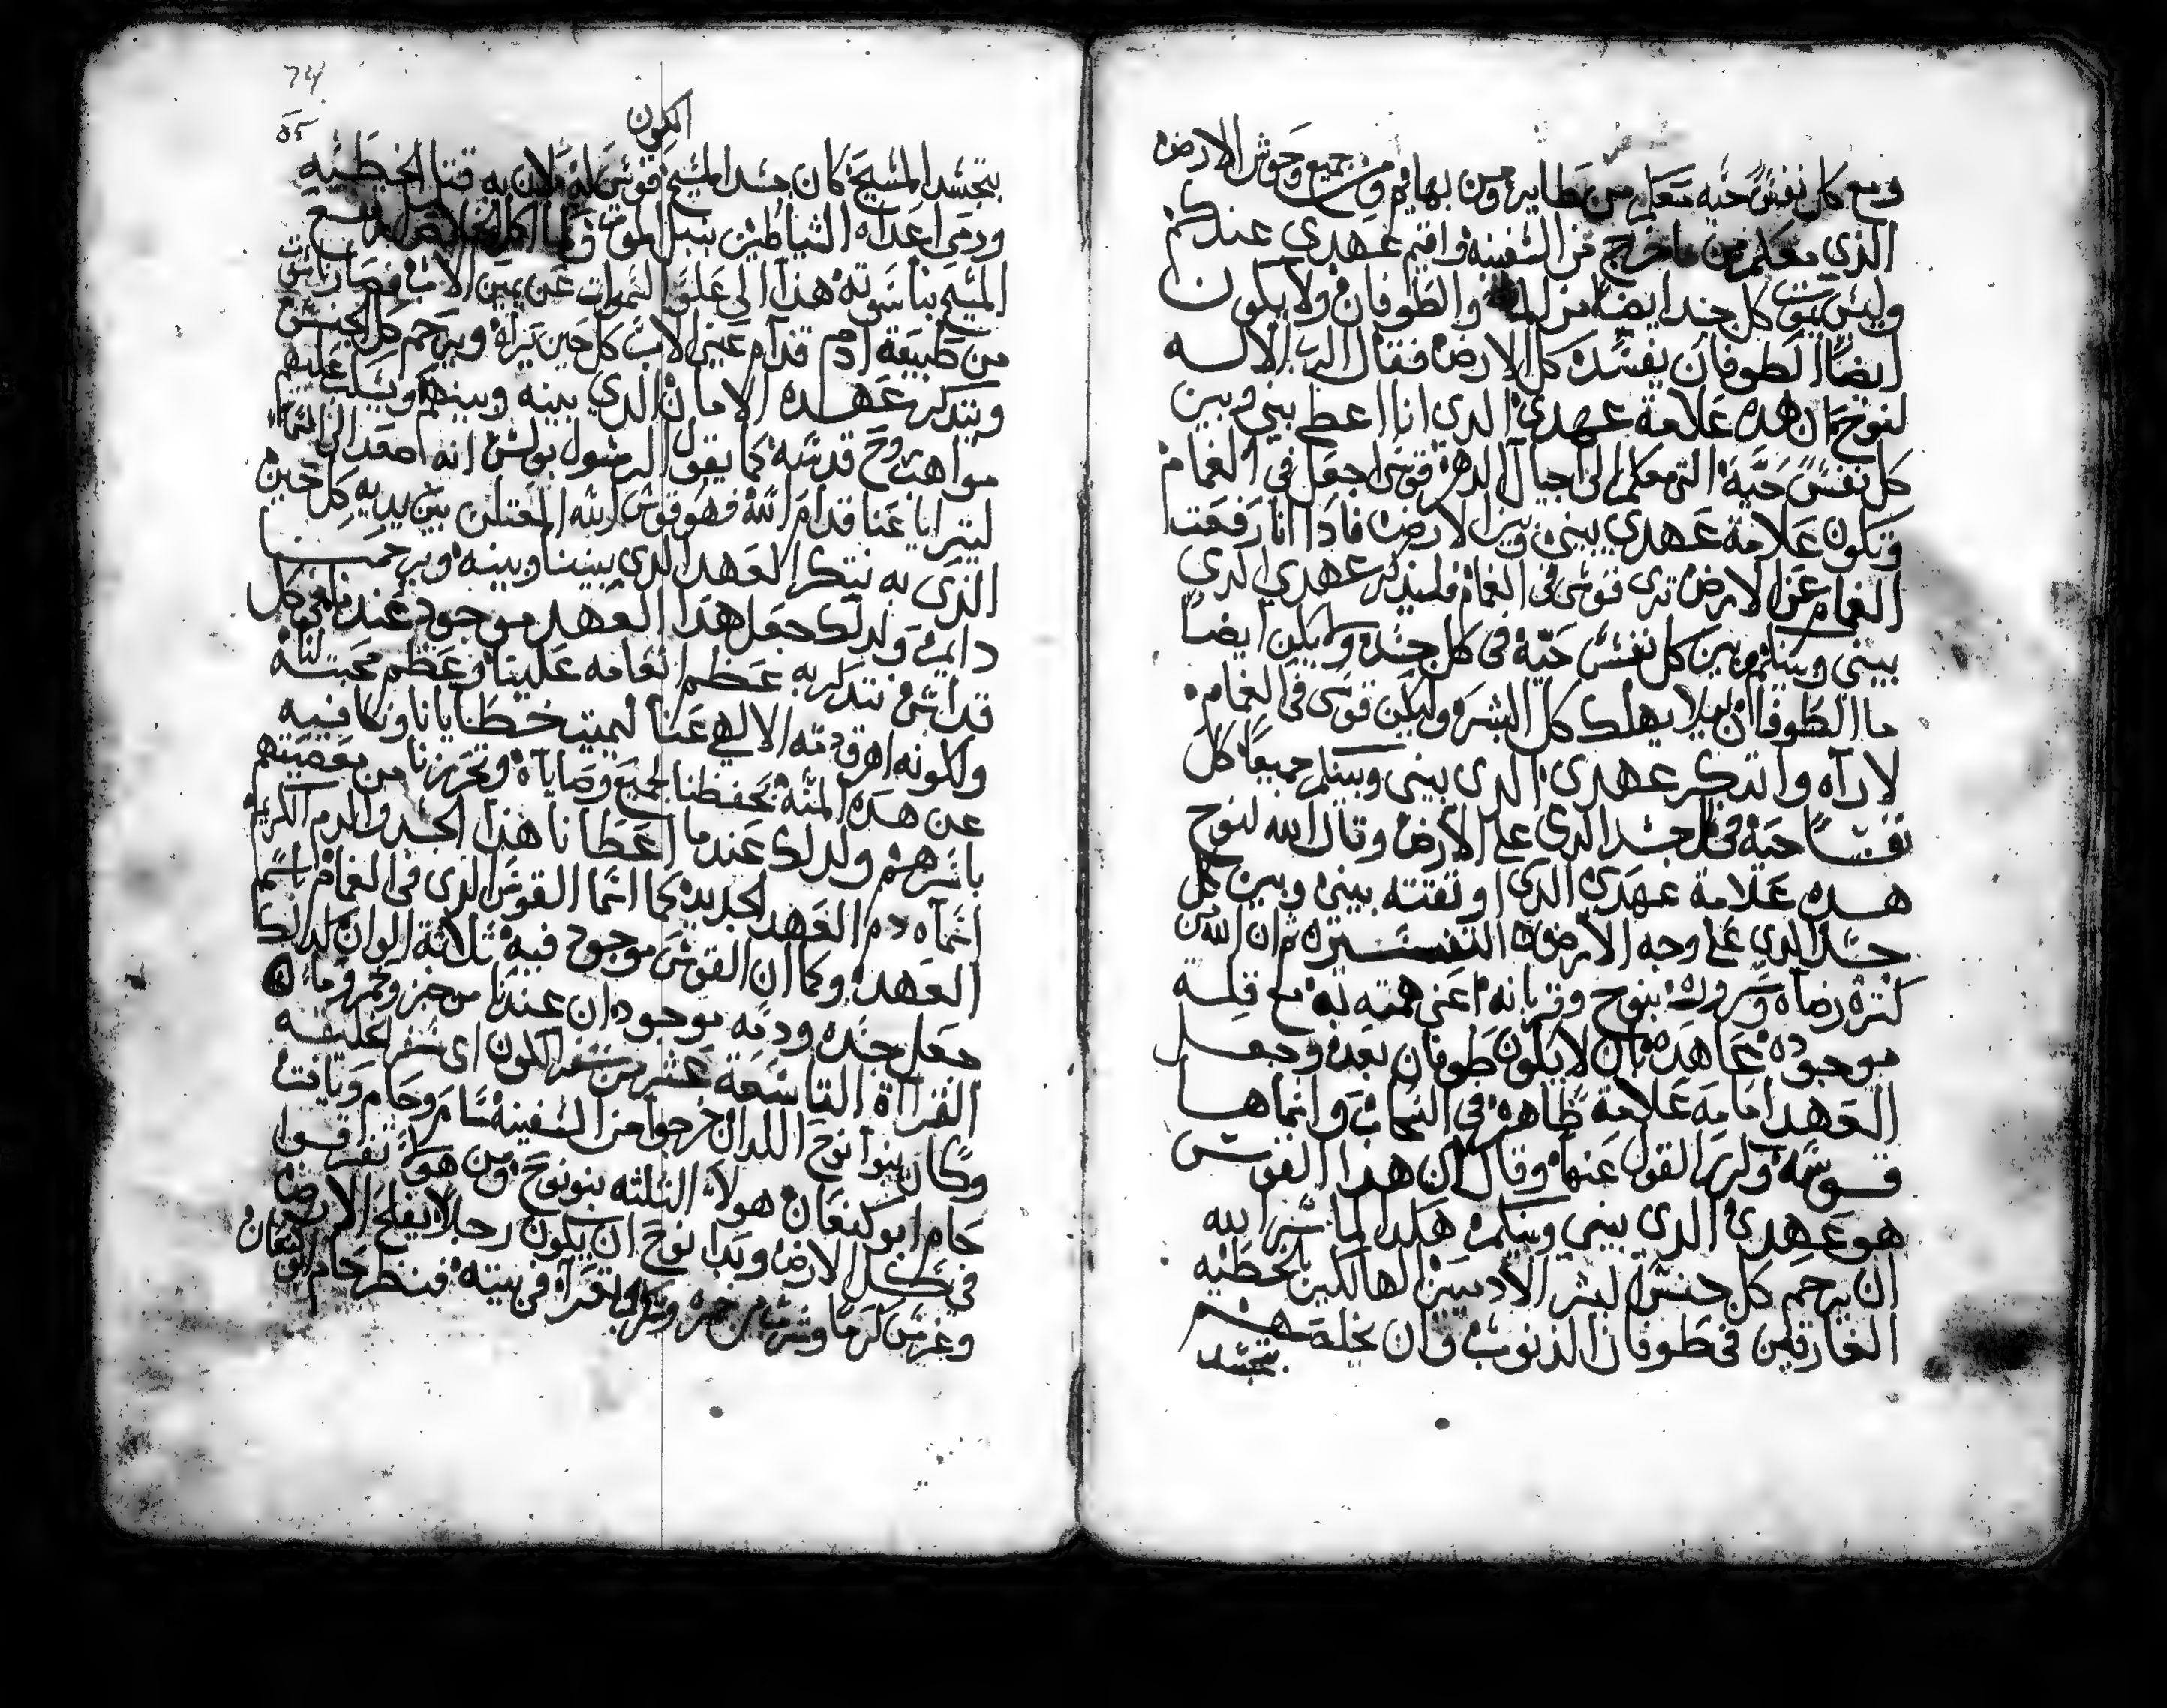 ومع كل نفسً حيه معكم من طاير ومن بهايم ومن جميع وحوش الارض
الذي معكم من ماخرج من السفينه واقيم عهدي عندكم
وليس يموت كل جسد ايضا من الطوفان ولا يكون
ايضاً الطوفان يفسد كل الارض فقال الرب الاله
لنوح هذه علامة عهدي الذي انا اعطي بيني وبين
كل نفسً حيَّة التي معكم الى اجيال الدهر قوسى اجعل في الغمام
وتكون علامة عهدي بيني وبين الارض فاذا انا رفعت
الغمام عن الارض ترى قوسى في الغمام فليذكر عهدي الذي
بيني وبينكم وبين كل نفس حيّة في كل جسد ولا يكن ايضاً
ما الطوفان ليلا يهلك كل البشر وليكن قوسى في الغمام
لاراه واتذكر عهدي الذي بيني وبينكم جميعاً كل
نفساً حية في كل جسد الذي على الارض وقال الله لنوح
هذه علامة عهدي الذي اوثقته بيني وبين كل
جسد الذي على وجه الارض التفسير ثم ان الله من
كترة رضاه وسروره بنوح وقربانه اعني همته به مع قلة
موجوده عاهده بان لا يكون طوفان بعده وجعل
العهد امامه علامة ظاهره في السحاب واسماها
قوسه وكرر القول عنها وقال ان هذا القوس
هو عهدي الذي بيني وبينكم هكذا لما سر الله
ان يرحم كل جنس البشر الادميين الهالكين بالخطيه
الغارقين في طوفان الذنوب وان يخلصهم
بتجسد
74
الكون
بتجسد المسيح كان جسد المسيح قوس له لان به قتل الخطيه
ورمى اعداه الشياطين بنبل الموت ولما اكمل الخلاص رفع
المسيح بناسوته هذا الى علو السموات عن يمين الاب فصار ناسوت
من طبيعة ادم قدام عين الاب كل حين يراه ويرحم كل الجنس
ويتدكر عهده الامان الذي بينه وبينهم ويسكب عليهم
مواهب روح قدسه كما يقول الرسول بولس انه اصعد الى السما
ليترايا عنا قدام الله فهو قوس الله المقتلن بين يديه كل حين
الذي به يتذكر العهد الذي بيننا وبينه ويرحمنا
دايمٍ ولدلك جعل هذا العهد موجود عندنا في كل
قداس نتدكر به عظم انعامه علينا وعظم محبته لنا
ولكونه اهرق دمه الالهي عنا ليميت خطايانا ونكافيه
عن هذه المنّة بحفظنا لجميع وصاياه وتحرزنا من معصيتهم
باسرهم ولدلك عندما اعطانا هذا الجسد والدم الكريم
اسماه دم العهد الجديد كما اسما القوس الذي في الغمام باسم
العهد وكما ان القوس موجود فيه ثلاثة الوان كدلك
جعل جسده ودمه موجودان عندنا من خبز وخمر وما
القراة التاسعة عشر من سفر الكون اى سفر الخليقه
وكان بنوا نوح اللدان خرجوا من السفينة سام وحام ويافت
حام ابو كنعان هولا الثلثه بنو نوح ومن هولا تفرقوا
في كل الارض وبدا نوح ان يكون رجلاً يفلح الارض
وغرس كرماً وشرب من خمره وسكر وتعرا في بيته فنظر حام ابو كنعان